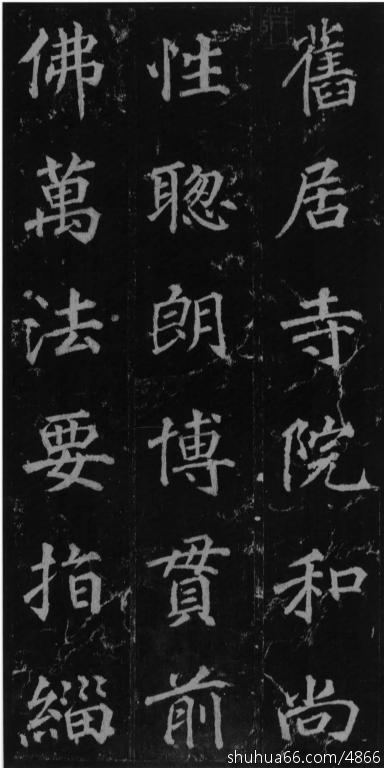 舊居寺院和尚
性聦朗博貫前
佛萬法要指緇
shuhua66.com/4866